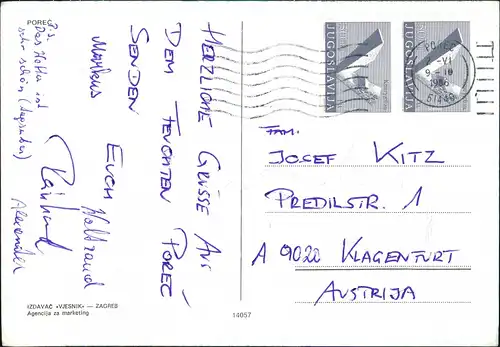 POREČ
HERZLICHE GRÜSSE AUS
DEM FEUCHTEN POREČ
SENDEN
EUCH Waltraud
Markus
Reinhard
Alexander
P.S.
Das Hotel ist
sehr schön (
JUGOSLAVIJA
JUGOSLAVIJA
POREČ
-VI
9-10
1986
51440
FAM.
JOSEF KITZ
PREDILSTR. 1
A 9020 KLAGENFURT
AUSTRIJA
IZDAVAČ «VJESNIK» — ZAGREB
Agencija za marketing
14057